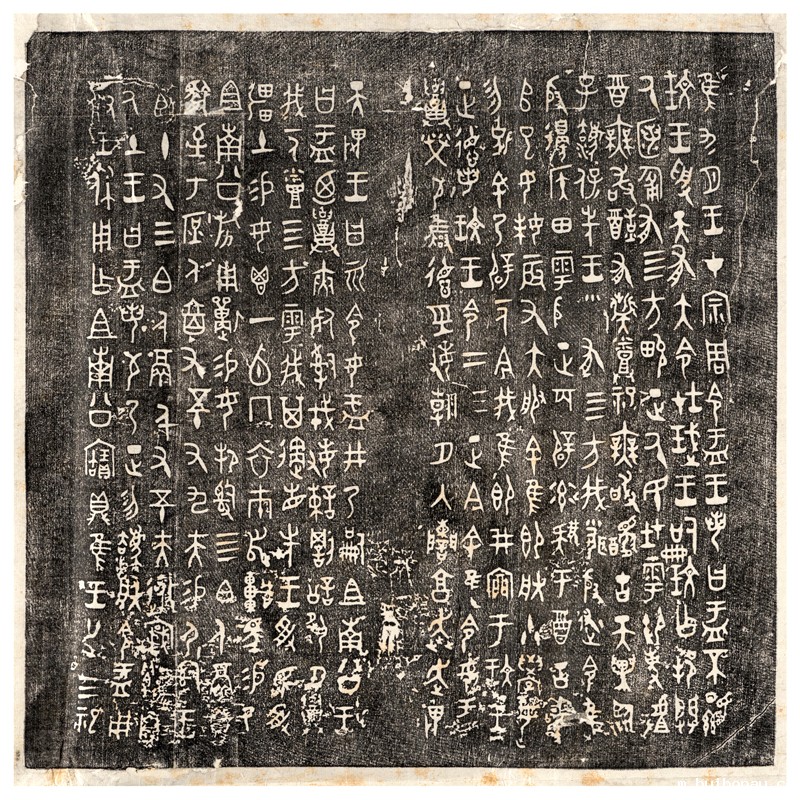 隹九月王才宗周令盂王若曰盂不顯
玟王受天有大令在珷王嗣玟乍邦闢
氒匿匍有四方畯正氒民在雩御事䖒
酉無敢酖有祡糞祀無敢䤔古天異臨
子法保先王有四方我聞殷述令隹
殷邊侯田雩殷正百辟率肄于酉古喪
𠂤巳女妹辰又大服余隹即朕小學女
勿剋余乃辟一人今我隹即井㐭于玟王
正德若玟王令二三正今余隹令女盂
召榮敬雍德巠敏朝夕入讕享奔走畏
天畏王曰令女盂井乃嗣且南公王
曰盂廼召夾死司戎敏諫罰訟夙夕召
我一人烝四方雩我其遹省先王受民受
疆土易女鬯一卣冂衣巿舄車馬易乃
且南公旂用狩易女邦司四白人鬲自
馭至于庶人六百又五十又九夫易尸司王
臣十又三白人鬲千又五十夫遷自
氒土王曰盂若敬乃正勿法朕令盂用
對王休用乍且南公寶鼎隹王廿又三祀